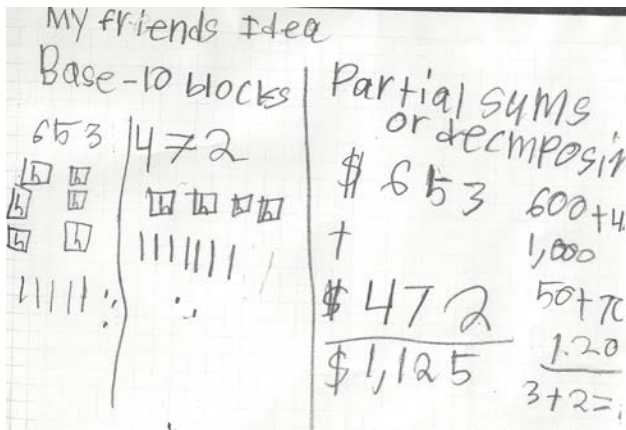 My friends Idea
Base-10 blocks
653
472
h h
h h
h h
h h h h
Partial sums
or decmposin
$ 653
+
$ 472
$1,125
600+4
1,000
50+70
1.20
3+2=